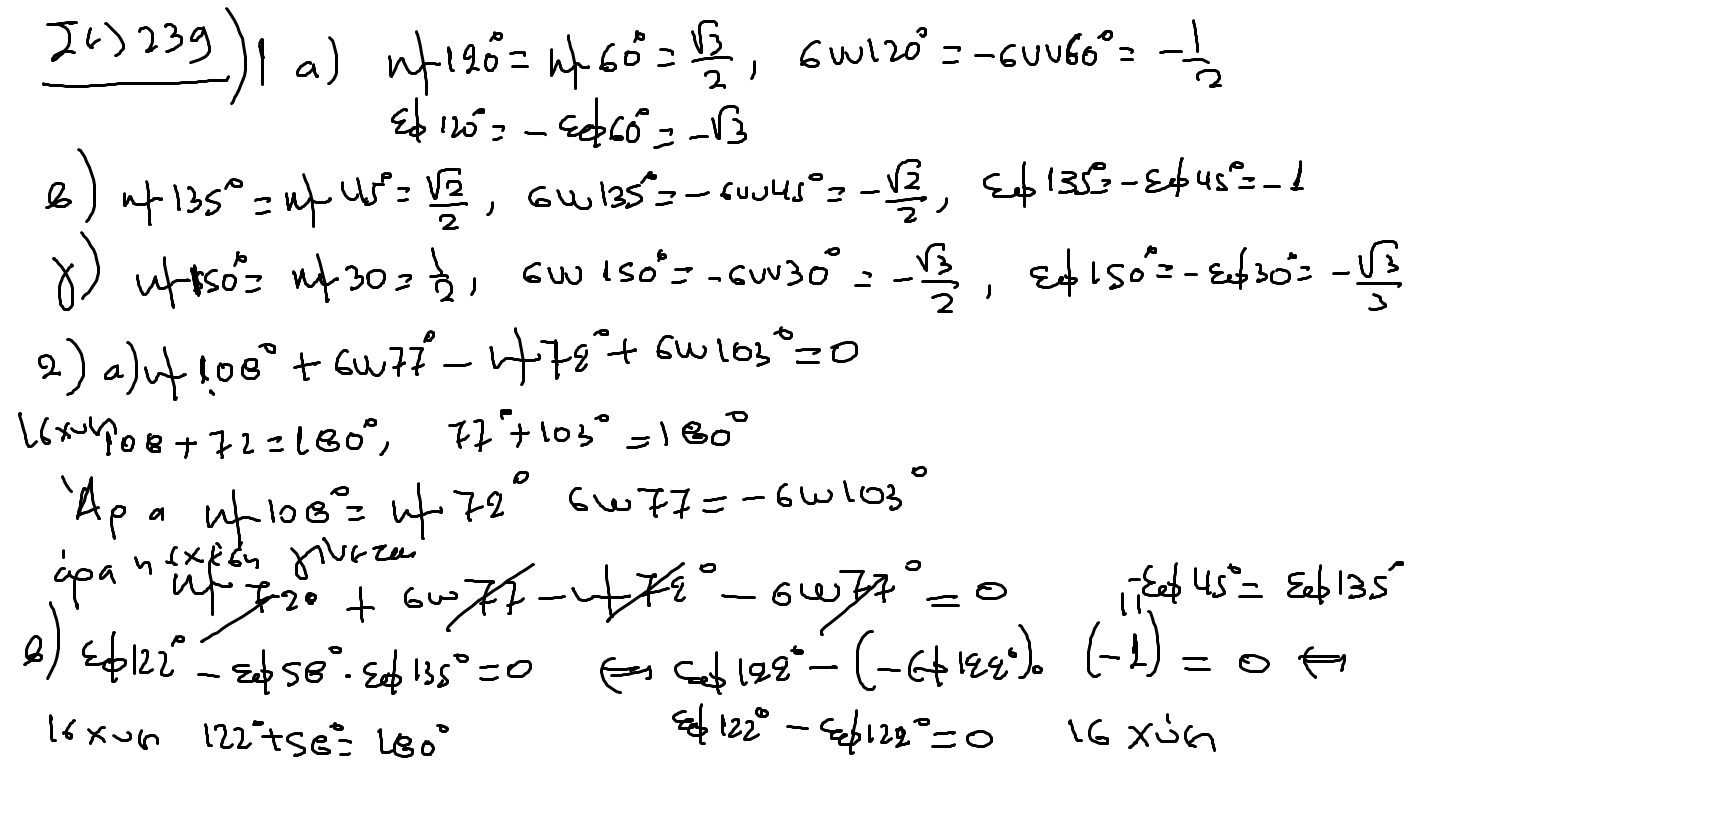 Σελ 239) 1 α) ημ120° = ημ60° = √3/2, συν120° = -συν60° = -1/2
εφ120° = -εφ60° = -√3
β) ημ135° = ημ45° = √2/2, συν135° = -συν45° = -√2/2, εφ135° = -εφ45° = -1
γ) ημ150° = ημ30 = 1/2, συν150° = -συν30° = -√3/2, εφ150° = -εφ30° = -√3/3
2) α) ημ108° + συν77° - ημ72° + συν103° = 0
ισχύει 108 + 72 = 180°, 77° + 103° = 180°
Άρα ημ108° = ημ72° συν77 = -συν103°
άρα η σχέση γίνεται
ημ72° + συν77 - ημ72° - συν77° = 0 -εφ45° = εφ135°
β) εφ122° - εφ58° · εφ135° = 0 ⇔ εφ122° - (-εφ122°) · (-1) = 0 ⇔
ισχύει 122° + 58° = 180° εφ122° - εφ122° = 0 ισχύει